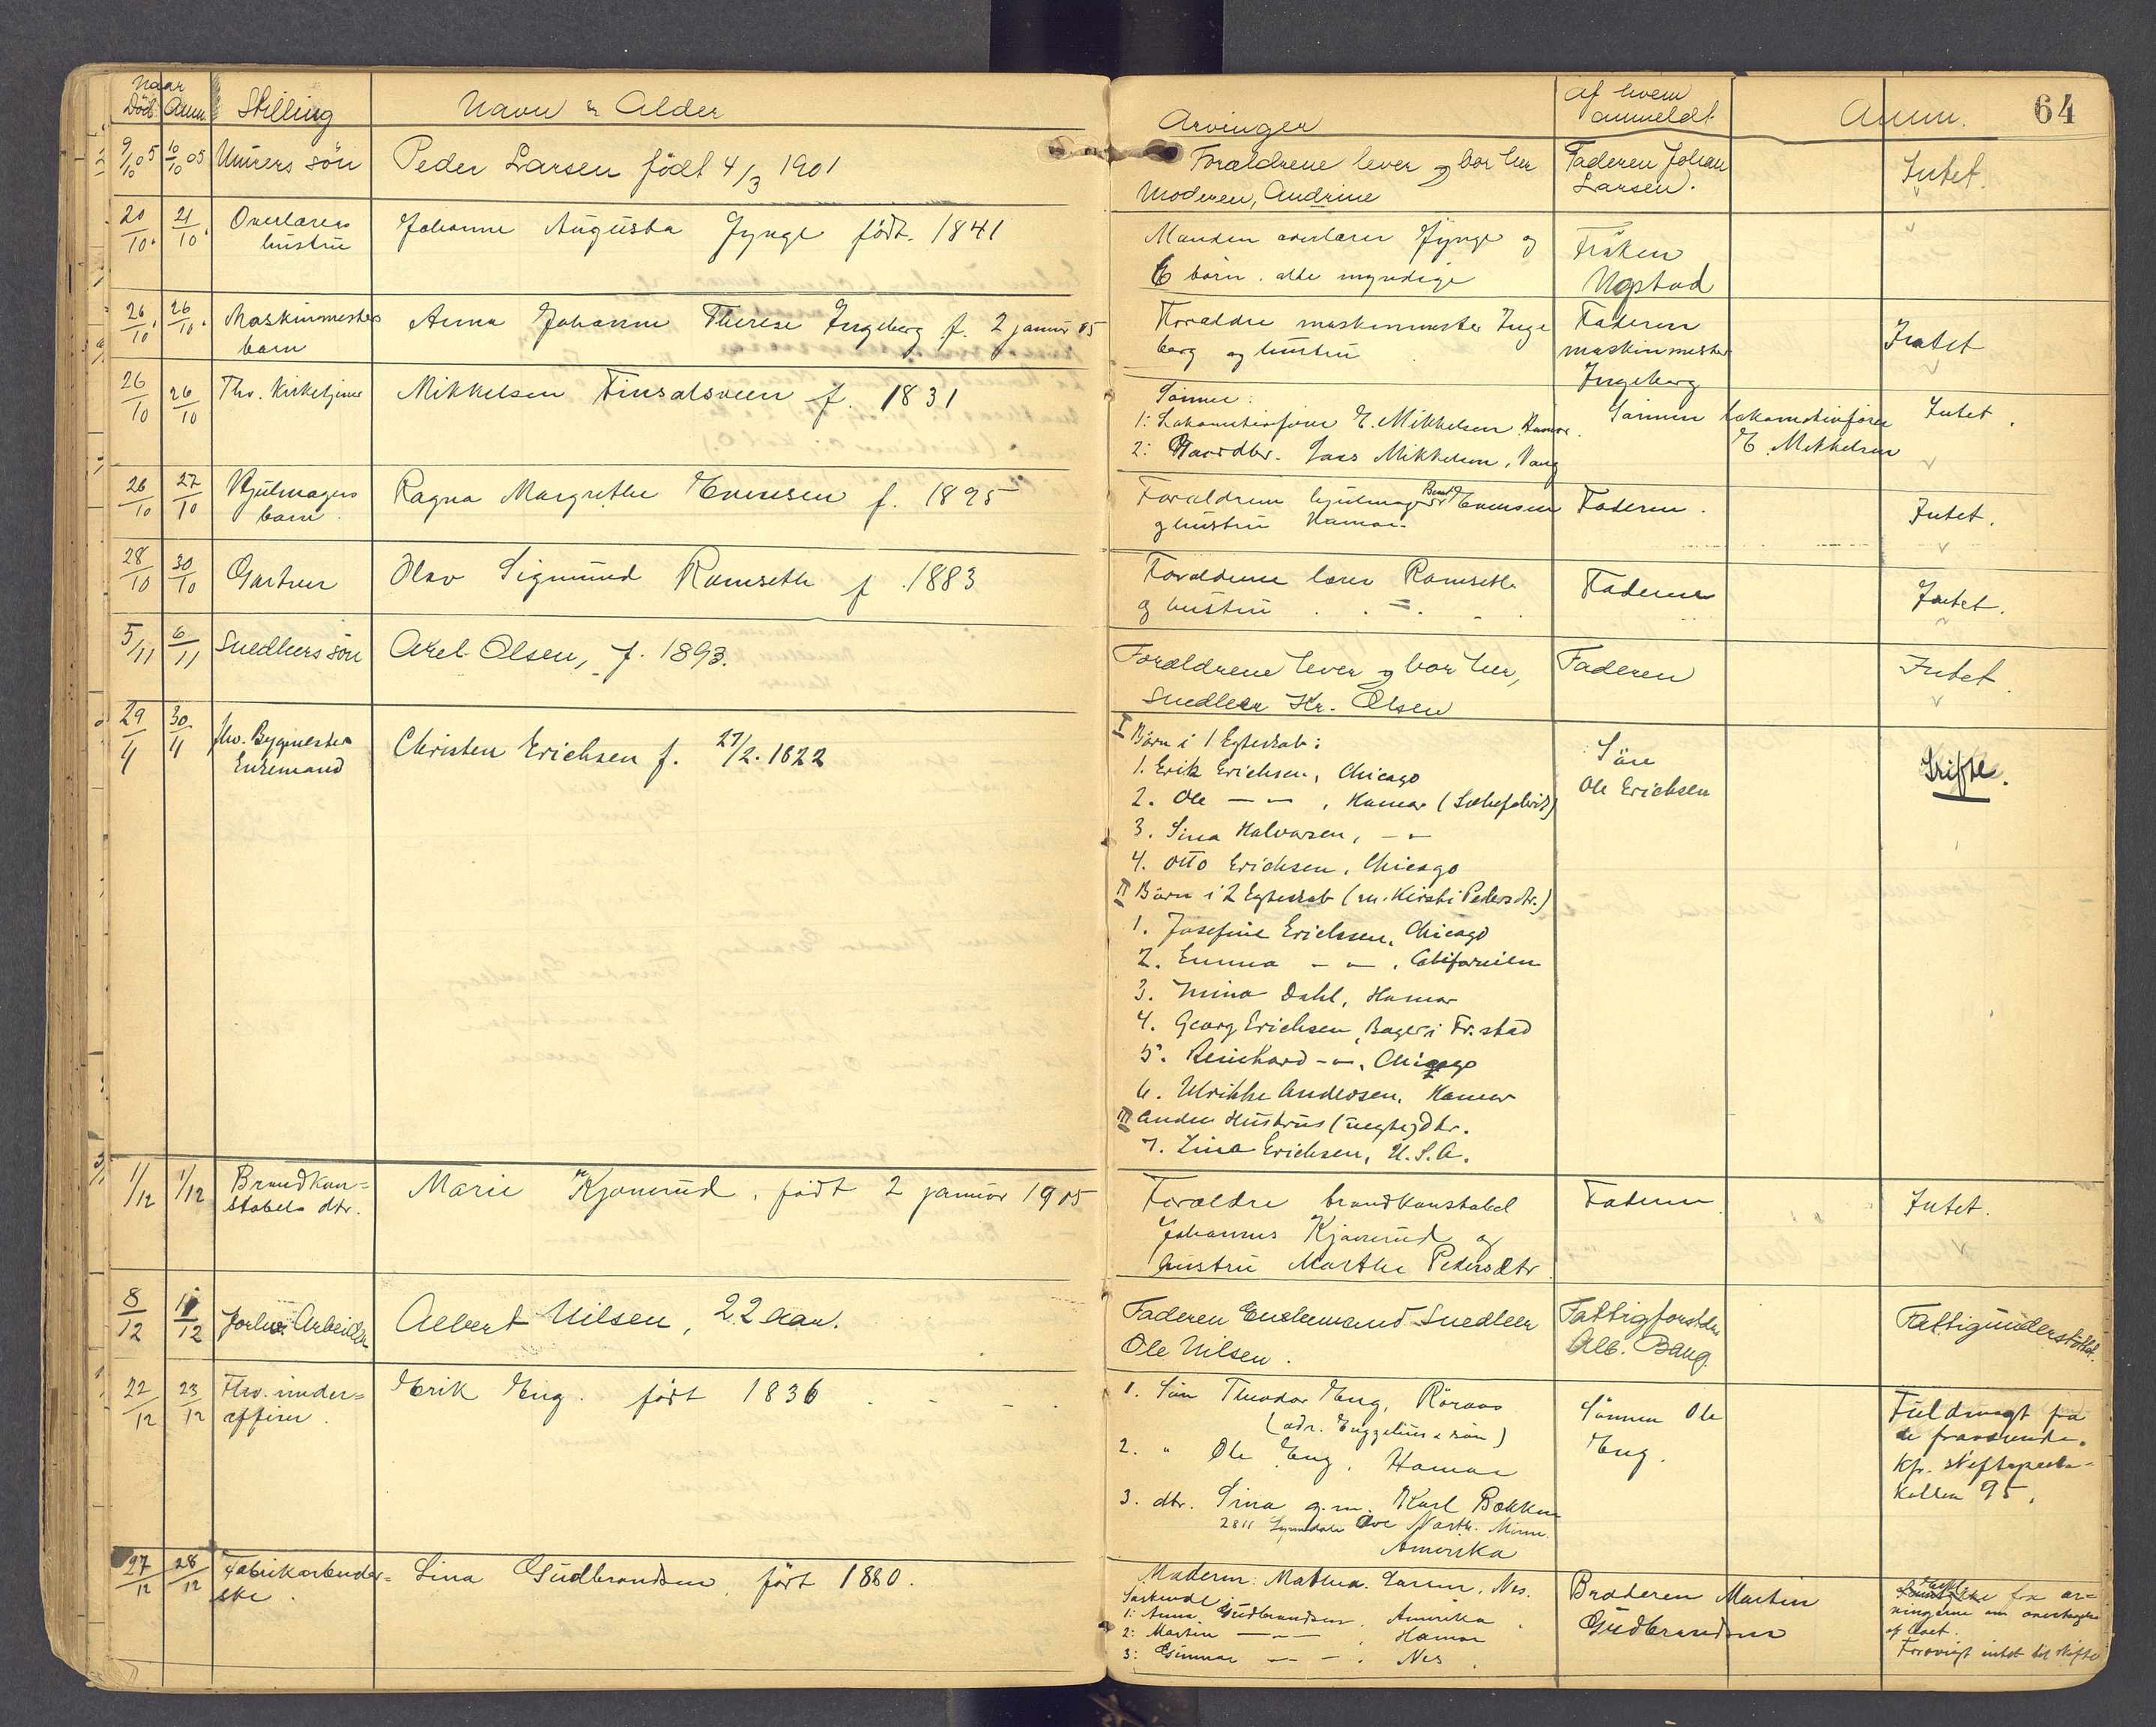 Naar
Död Anm. Stilling Navn & Alder Arvinger af hvem anmeldt Anm. 64
9/10 05 10/10 05 Murers sön Peder Larsen födt 4/3 1901
Forældrene lever og bor her
Moderen, Andrine
Faderen Johan
Larsen.
Intet.
20/10. 21/10. Overlærers
hustru
Johanne Augusta Jynge födt. 1841
Manden overlærer Jynge og
6 börn. alle myndige
Fröken
Ugstad
"
26/10. 26/10. Maskinmesters
barn
Anna Johanne Therese Ingeberg f. 2 januar 05
Forældre maskinmester Inge
berg og hustru
Faderen
maskinmester
Ingeberg
Intet
26/10 26/10 Fhv. Kirketjener Mikkelsen Finsalsveen f. 1831
Sönner:
1: Lokomotivförer E. Mikkelsen Hamar.
2: Gaardbr. Lars Mikkelsen, Vang
Sönnen lokomotivförer
E. Mikkelsen
Intet.
26/10 27/10 Hjulmagers
barn.
Ragna Margrethe Evensen f. 1895
Forældrene hjulmager Evensen
og hustru Hamar.
Faderen.
Intet.
28/10 30/10 Gartner Olav Sigmund Ramseth f. 1883
Forældrene lærer Ramseth
og hustru . . = . . .
Faderen
Intet.
5/11 6/11 Snedkers sön Axel Olsen, f. 1893.
Forældrene lever og bor her,
Snedker Kr. Olsen
Faderen
Intet.
29/11 30/11 fhv. Bygmester
Enkemand
Christen Erichsen f. 27/2. 1822
I Börn i 1 Egteskab:
1. Erik Erichsen, Chicago
2. Ole — „ — , Hamar (Sæbefabrik)
3. Sina Halvorsen, — „
4. Otto Erichsen, Chicago
II Börn i 2 Egteskab (m. Kirsti Pedersdtr.)
1. Josefine Erichsen, Chicago
2. Emma — „ — , Californien
3. Mina Dahl, Hamar
4. Georg Erichsen, Bager i Fr.stad
5. Reinhard — „ —, Chicago
6. Ulrikke Andersen, Hamar
III Anden Hustrus (uegte) Dtr.
7. Lina Erichsen, U.S.A.
Sön
Ole Erichsen
Skifte.
1/12 1/12 Brandkon=
stabels dtr.
Marie Kjonerud, födt 2 januar 1905
Forældre brandkonstabel
Johannes Kjonerud og
hustru Marthe Pedersdtr
Faderen
Intet.
8/12 11/12 forhv. Arbeider Albert Nilsen, 22 aar.
Faderen Enkemand Snedker
Ole Nilsen.
Fattigforstdr
Alb. Bang.
Fattigunderstöttet.
22/12 23/12 Fhv. under=
officer.
Erik Eng. födt 1836
1. Sön Theodor Eng, Röraas
(adr. Engzelius & sön)
2. " Ole Eng, Hamar
3. dtr. Sina g.m. Karl Bakken
2811 Lyndale Ave North. Minn.
Amerika
Sönnen Ole
Eng.
Fuldmagt fra
de fraværende.
Kfr. skifteproto=
kollen 95.
27/12 28/12 Fabrikarbeider=
ske.
Lina Gudbrandsen, födt 1880.
Moderen: Mathea Larsen, Nes.
Söskende:
1: Anna Gudbrandsen, Amerika
2: Martin — „ — , Hamar
3: Gunnar — „ — , Nes.
Broderen Martin
Gudbrandsen
fra ar=
vingerne om overtagelse
af boet.
Forövrigt intet til skifte